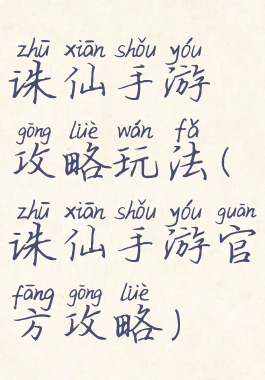 zhū xiān shǒu yóu
诛仙手游
gōng lüè wán fǎ
攻略玩法(
zhū xiān shǒu yóu guān
诛仙手游官
fāng gōng lüè
方攻略)